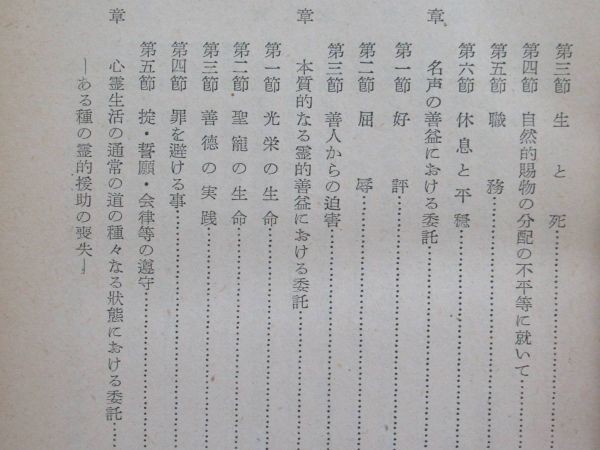 第三節 生と死
第四節 自然的賜物の分配の不平等に就いて
第五節 職務
第六節 休息と平穏
章 名声の善益における委託
第一節 好評
第二節 屈辱
第三節 善人からの迫害
章 本質的なる霊的善益における委託
第一節 光栄の生命
第二節 聖寵の生命
第三節 善徳の実践
第四節 罪を避ける事
第五節 掟・誓願・会律等の遵守
章 心霊生活の通常の道の種々なる状態における委託
—ある種の霊的援助の喪失—